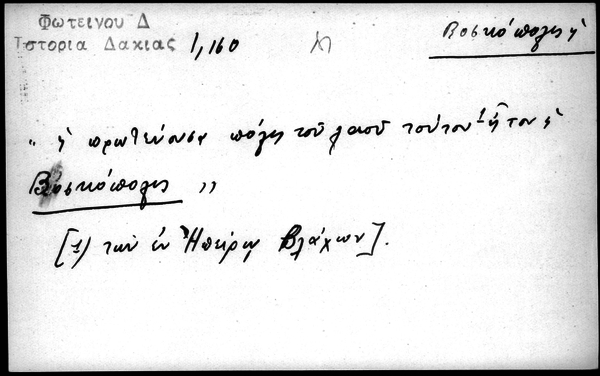 Φωτεινου Δ
Ιστορια Δακιας 1,160
Βοσκόπολις ἡ
" ἡ πρωτεύουσα πόλις τοῦ λαοῦ τούτου 1 ἦτον ἡ
Βοσκόπολις "
[1) τῶν ἐν Ἠπείρῳ Βλάχων].